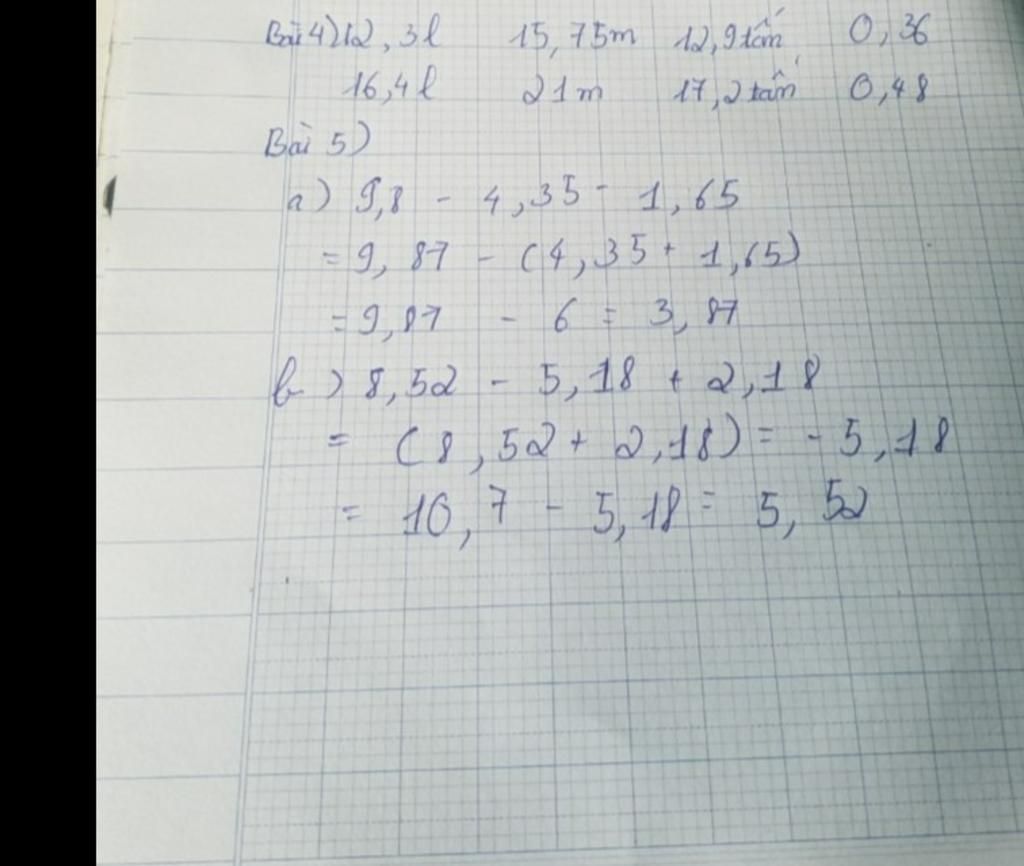 Bài 4) 12,3l 15,75m 12,9 tấn 0,36
16,4l 21m 17,2 tấn 0,48
Bài 5)
a) 9,8 - 4,35 - 1,65
= 9,87 - (4,35 + 1,65)
= 9,87 - 6 = 3,87
b) 8,52 - 5,18 + 2,18
= (8,52 + 2,18) = - 5,18
= 10,7 - 5,18 = 5,52